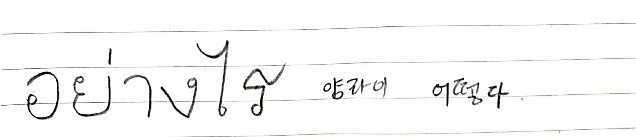 อย่างไร 양라이 어떻다